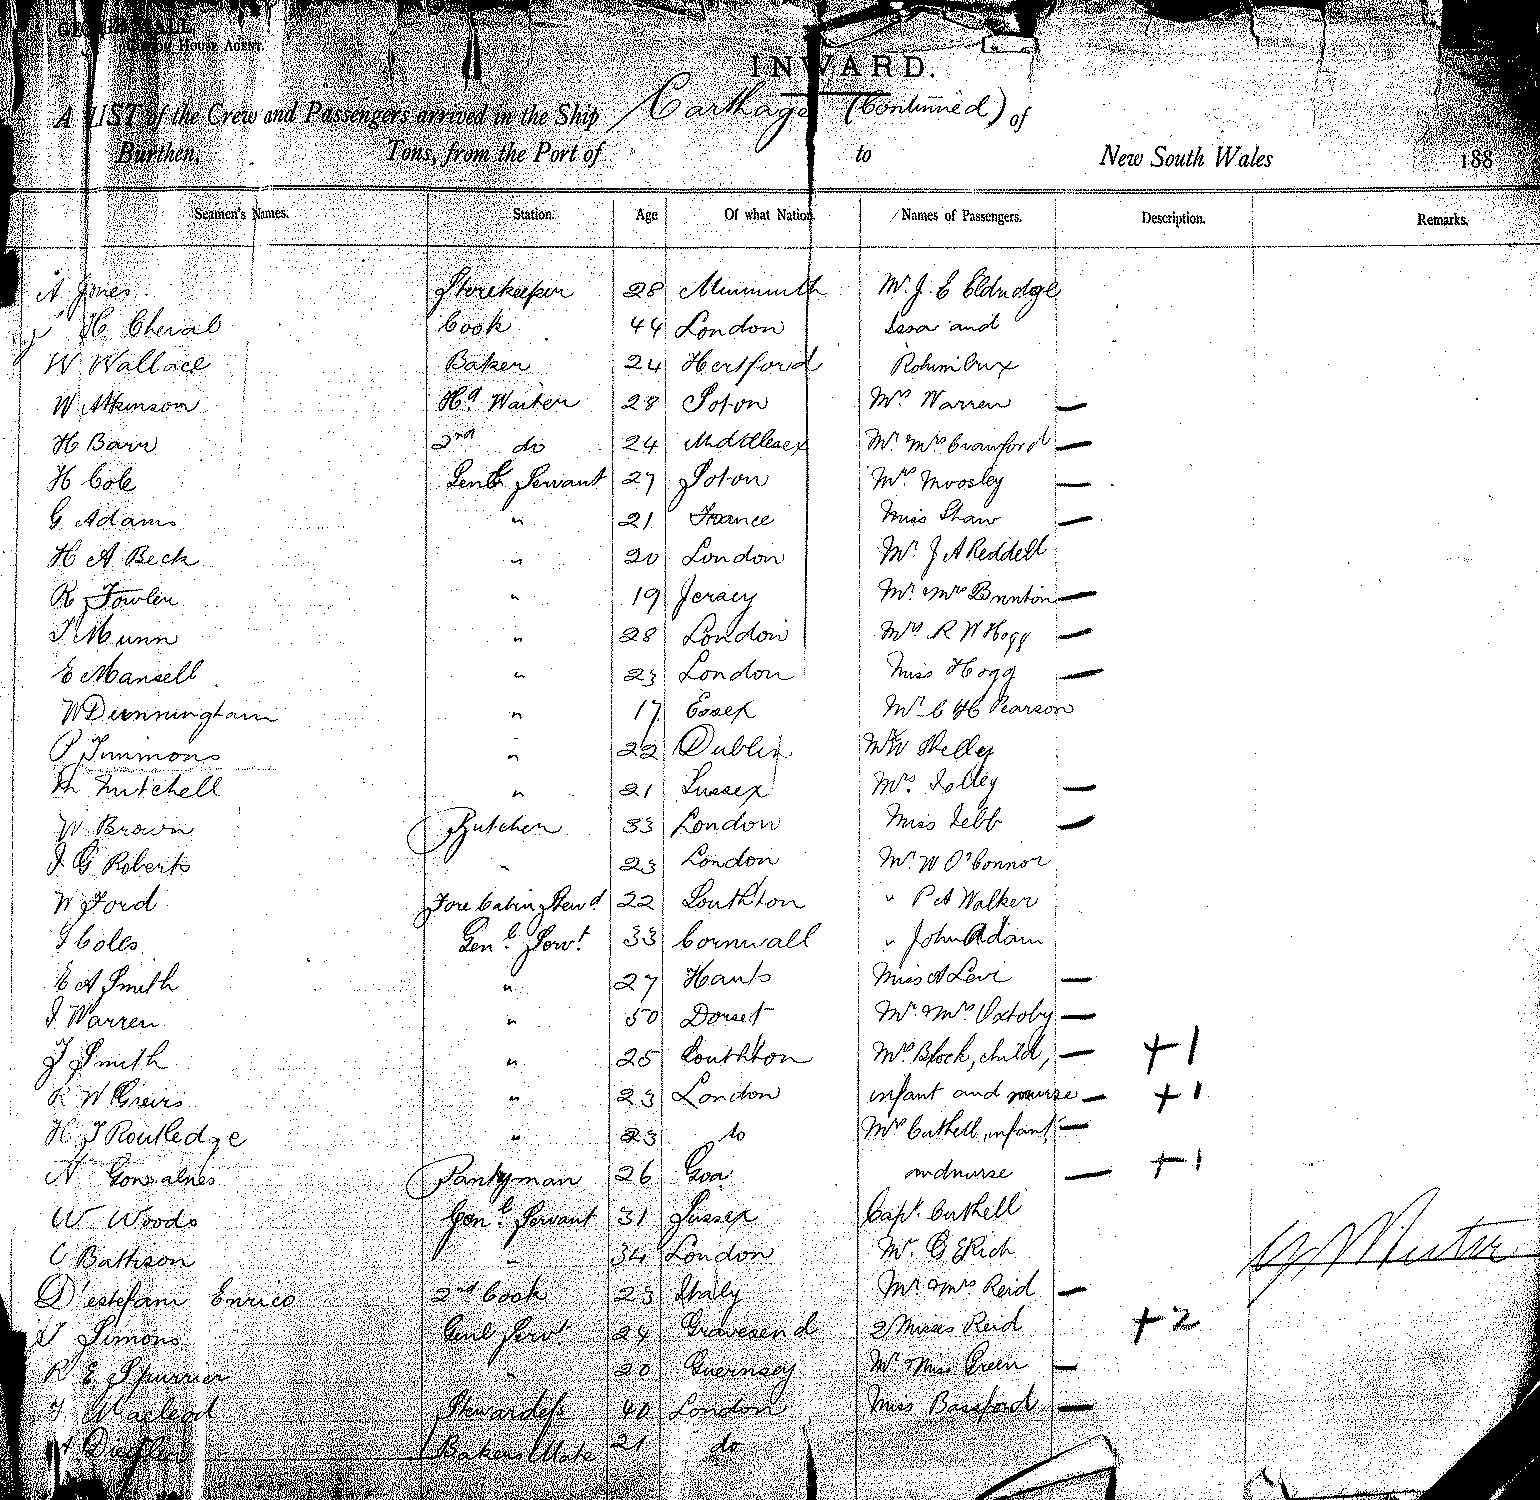 HALL
Custom House Agent
INWARD.
A LIST of the Crew and Passengers arrived in the Ship Carthage (Continued) of
Burthen, Tons, from the Port of to New South Wales 188
Seamen's Names. Station. Age Of what Nation. Names of Passengers. Description. Remarks.
A Jones Storekeeper 28 Mr. J. E Eldridge
H Cheval Cook 44 London Issa and
W Wallace Baker 24 Hertford Rohim Bux
W Atkinson Hd. Waiter 28 Soton Mrs Warren —
H Barr 2nd do 24 Middlesex Mr. Mrs Crawford —
H Cole Genl. Servant 27 Soton Mrs Moosley —
G Adams " 21 France Miss Shaw —
H A Beck " 20 London Mr. J A Reddell
R Fowler " 19 Jersey Mr. & Mrs Brunton —
T Munn " 28 London Mrs R W Hogg —
E Mansell " 23 London Miss Hogg —
W Dunningham " 17 Essex Mr. C H Pearson
P Timmons " 22 Dublin Mr W Shelley
Mitchell " 21 Sussex Mrs. Jolley —
W Brown Butcher 33 London Miss Tebb —
J G Roberts " 23 London Mr. W O'Connor
W Ford Fore Cabin Stewd 22 Southton " P A Walker
J Coles Genl. Servt. 33 Cornwall " John Adam
E A Smith " 27 Hants Miss A Levi —
J Warren " 50 Dorset Mr. & Mrs. Oxtoby —
J Smith " 25 Southton Mrs Block, child, — +1
R W Greirs " 23 London infant and nurse — +1
H J Routledge " 23 do Mrs Cuthell, infant —
A Gonsalnes Pantryman 26 Goa and nurse — +1
W Woods Genl. Servant 31 Sussex Capt. Cuthell
C Battison " 34 London Mr. G Rich
D'estefani Enrico 2nd Cook 23 Italy Mr. & Mrs Reid —
J Simons Genl Servt 24 Gravesend 2 Misses Reid +2
R E Spurrier " 20 Guernsey Mr. & Miss Green —
Macleod Stewardess 40 London Miss Bassford —
Bakers Mate 21 do